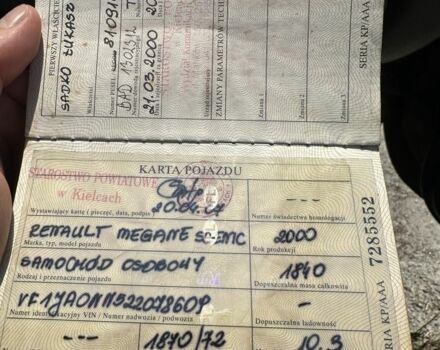 PIERWSZY WŁAŚCICIEL
SADKO ŁUKASZ
Właściciel
Numer PESEL
21.03.2000
Data I rejestracji za granicą
ZMIANY PARAMETRÓW TECH
Zmiana 1
Zmiana 2
Zmiana 3
SERIA KP/AAA
KARTA POJAZDU
STAROSTWO POWIATOWE
w Kielcach
20.04.07
- - -
Wystawiający kartę ( pieczęć, data, podpis
Numer świadectwa homologacji
RENAULT MEGANE SCENIC
2000
Marka, typ, model pojazdu
Rok produkcji
SAMOCHÓD OSOBOWY
1840
Rodzaj i przeznaczenie pojazdu
Dopuszczalna masa całkowita
-
Numer identyfikacyjny VIN / Numer nadwozia / podwozia
Dopuszczalna ładowność
- - -
1870/72
10.3
SERIA KP/AAA 7285552